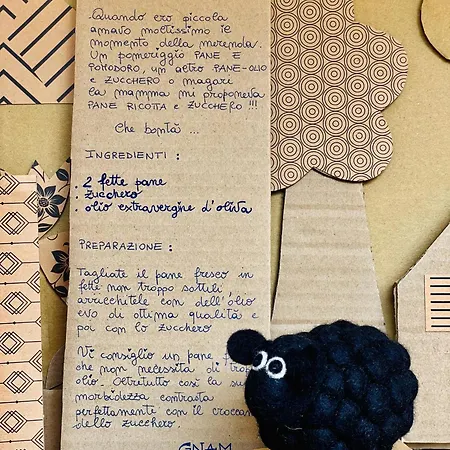 Quando ero piccola
amavo moltissimo il
momento della merenda.
Un pomeriggio PANE E
POMODORO, un altro PANE-OLIO
E ZUCCHERO o magari
la mamma mi proponeva
PANE RICOTTA e ZUCCHERO !!!
Che bontà ...
INGREDIENTI :
. 2 fette pane
. zucchero
. olio extravergine d'oliva
PREPARAZIONE :
Tagliate il pane fresco in
fette non troppo sottili
arricchitele con dell'olio
evo di ottima qualità e
poi con lo zucchero
Vi consiglio un pane
che non necessita di
olio. Oltretutto così la
morbidezza contrasta
perfettamente con il
dello zucchero.
GNAM